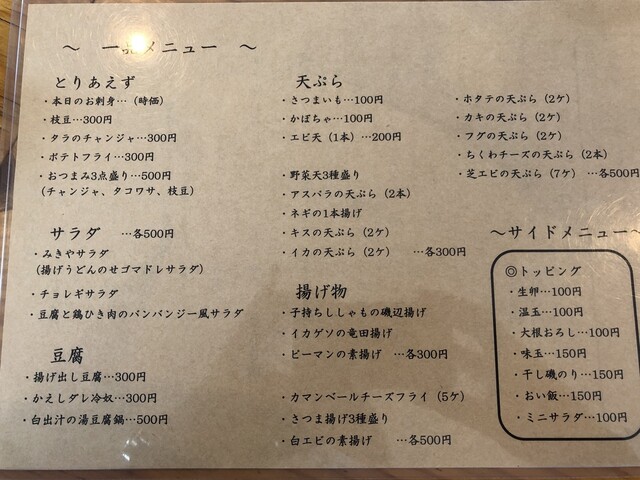 ～ 一品メニュー ～
とりあえず
・本日のお刺身…（時価）
・枝豆…300円
・タラのチャンジャ…300円
・ポテトフライ…300円
・おつまみ3点盛り…500円
（チャンジャ、タコワサ、枝豆）
サラダ …各500円
・みきやサラダ
（揚げうどんのせゴマドレサラダ）
・チョレギサラダ
・豆腐と鶏ひき肉のバンバンジー風サラダ
豆腐
・揚げ出し豆腐…300円
・かえしダレ冷奴…300円
・白出汁の湯豆腐鍋…500円
天ぷら
・さつまいも…100円
・かぼちゃ…100円
・エビ天（1本）…200円
・野菜天3種盛り
・アスパラの天ぷら（2本）
・ネギの1本揚げ
・キスの天ぷら（2ケ）
・イカの天ぷら（2ケ） …各300円
揚げ物
・子持ちししゃもの磯辺揚げ
・イカゲソの竜田揚げ
・ピーマンの素揚げ …各300円
・カマンベールチーズフライ（5ケ）
・さつま揚げ3種盛り
・白エビの素揚げ …各500円
・ホタテの天ぷら（2ケ）
・カキの天ぷら（2ケ）
・フグの天ぷら（2ケ）
・ちくわチーズの天ぷら（2本）
・芝エビの天ぷら（7ケ） …各500円
～サイドメニュー～
◎トッピング
・生卵…100円
・温玉…100円
・大根おろし…100円
・味玉…150円
・干し磯のり…150円
・おい飯…150円
・ミニサラダ…100円